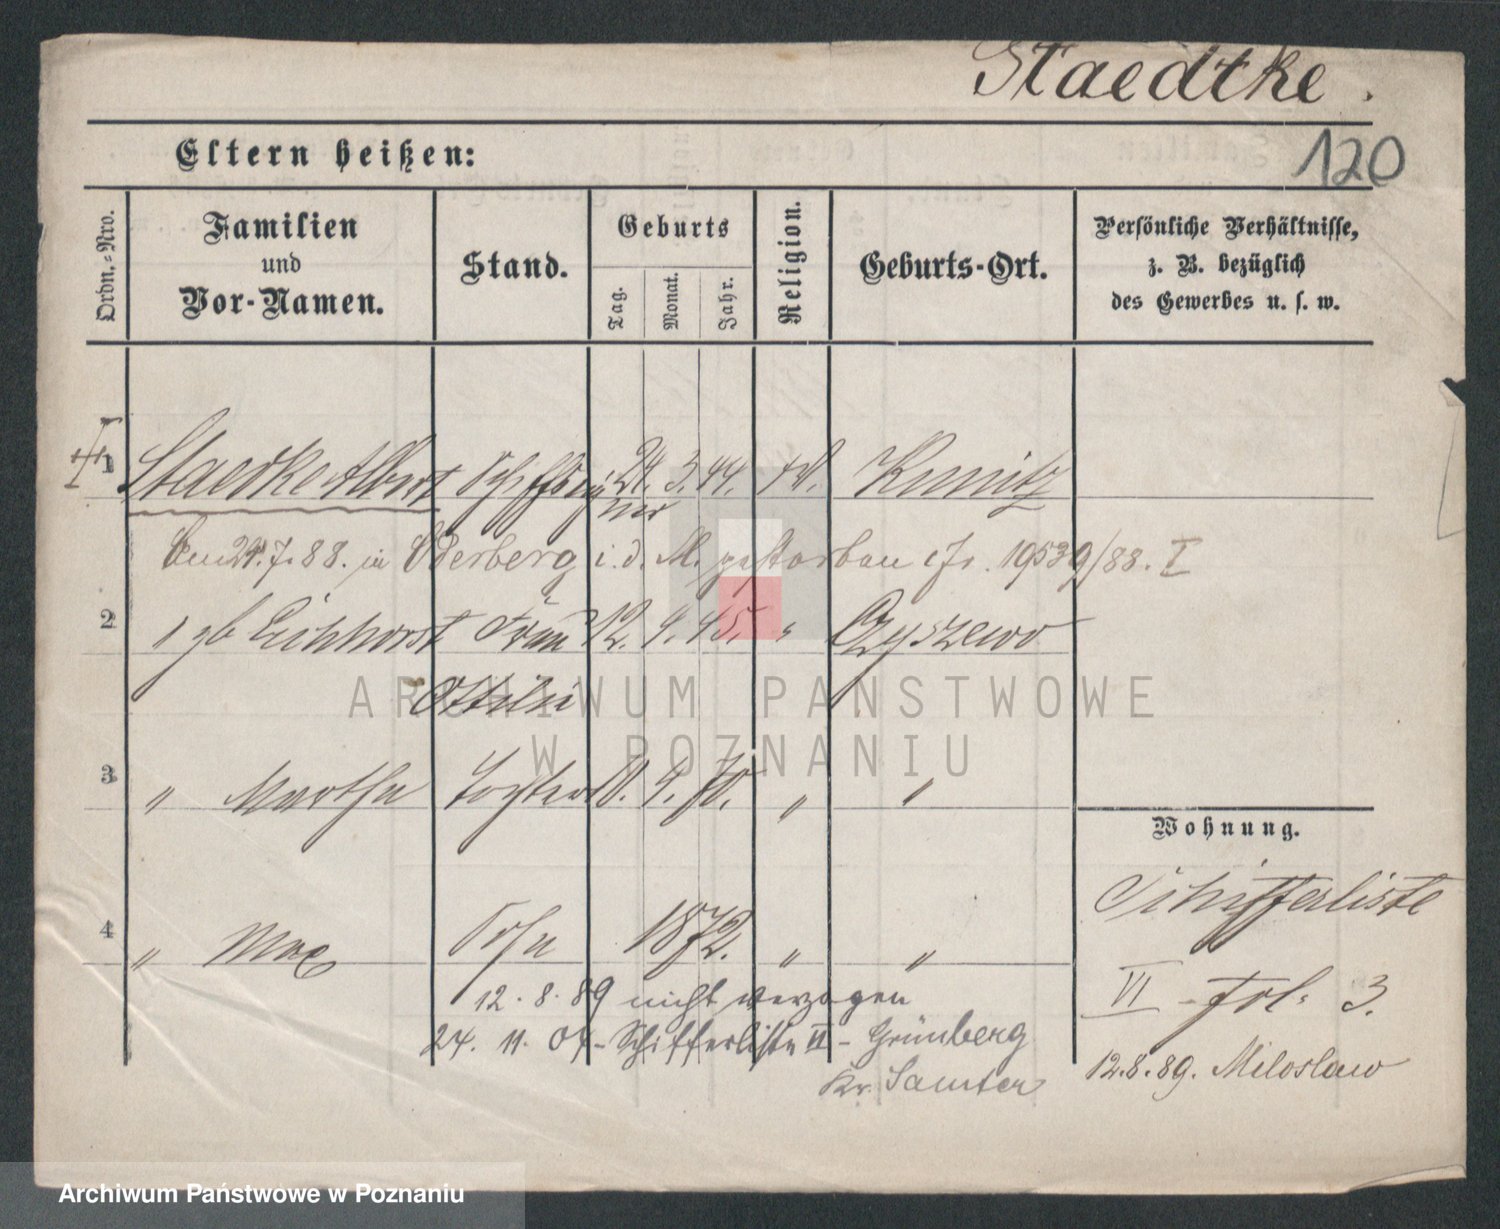 Staedtke.
120
Eltern heißen:
Ordn.=Nro.
Familien
und
Vor-Namen.
Stand.
Geburts
Tag.
Monat.
Jahr.
Religion.
Geburts-Ort.
Persönliche Verhältnisse,
z. B. bezüglich
des Gewerbes u. s. w.
1 Staedtke Albert Schiffseig 24. 3. 44.
ner
24.7.88. in Oderberg i. d. M. gestorben 10539/88. I
2 gb Eichhorst Frau 12. 4. 45. " Czyszewo
Ottilie
3 " Martha Tochter 10. 4. 70. " "
Wohnung.
Schifferliste
4 " Max Sohn 1872. " "
VI - Fol. 3.
12. 8. 89 nicht verzogen
24. 11. 04 - Schifferliste II - Grünberg
Kr. Samter
12.8.89. Miloslaw
ARCHIWUM PAŃSTWOWE
W POZNANIU
Archiwum Państwowe w Poznaniu